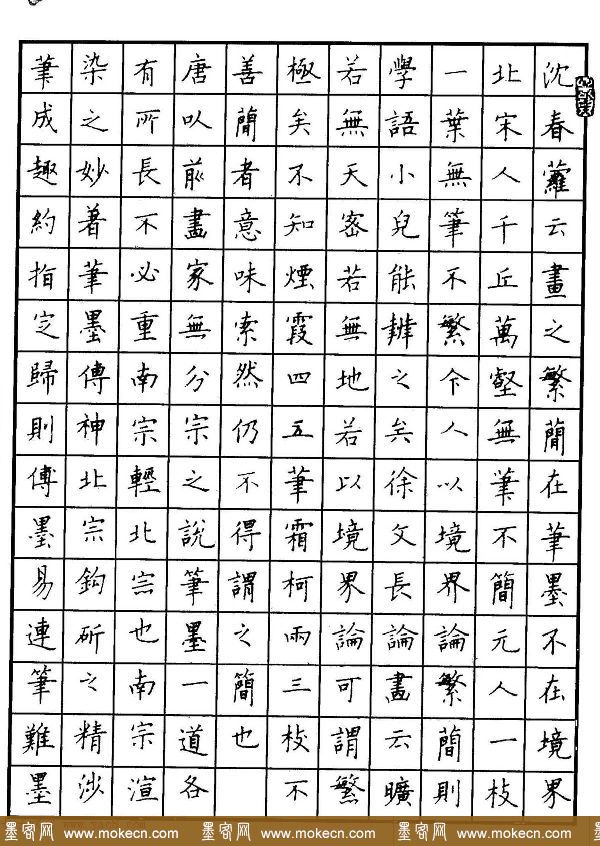 沈春蘿云畫之繁簡在筆墨不在境界
北宋人千丘萬壑無筆不簡元人一枝
一葉無筆不繁今人以境界論繁簡則
學語小兒能辨之矣徐文長論畫云曠
若無天密若無地若以境界論可謂繁
極矣不知煙霞四五筆霜柯兩三枝不
善簡者意味索然仍不得謂之簡也
唐以前畫家無分宗之說筆墨一道各
有所長不必重南宗輕北宗也南宗渲
染之妙着筆墨傳神北宗鉤斫之精涉
筆成趣約指定歸則傅墨易連筆難墨
墨客网 www.mokecn.com 墨客网 www.mokecn.com 墨客网 www.mokecn.com